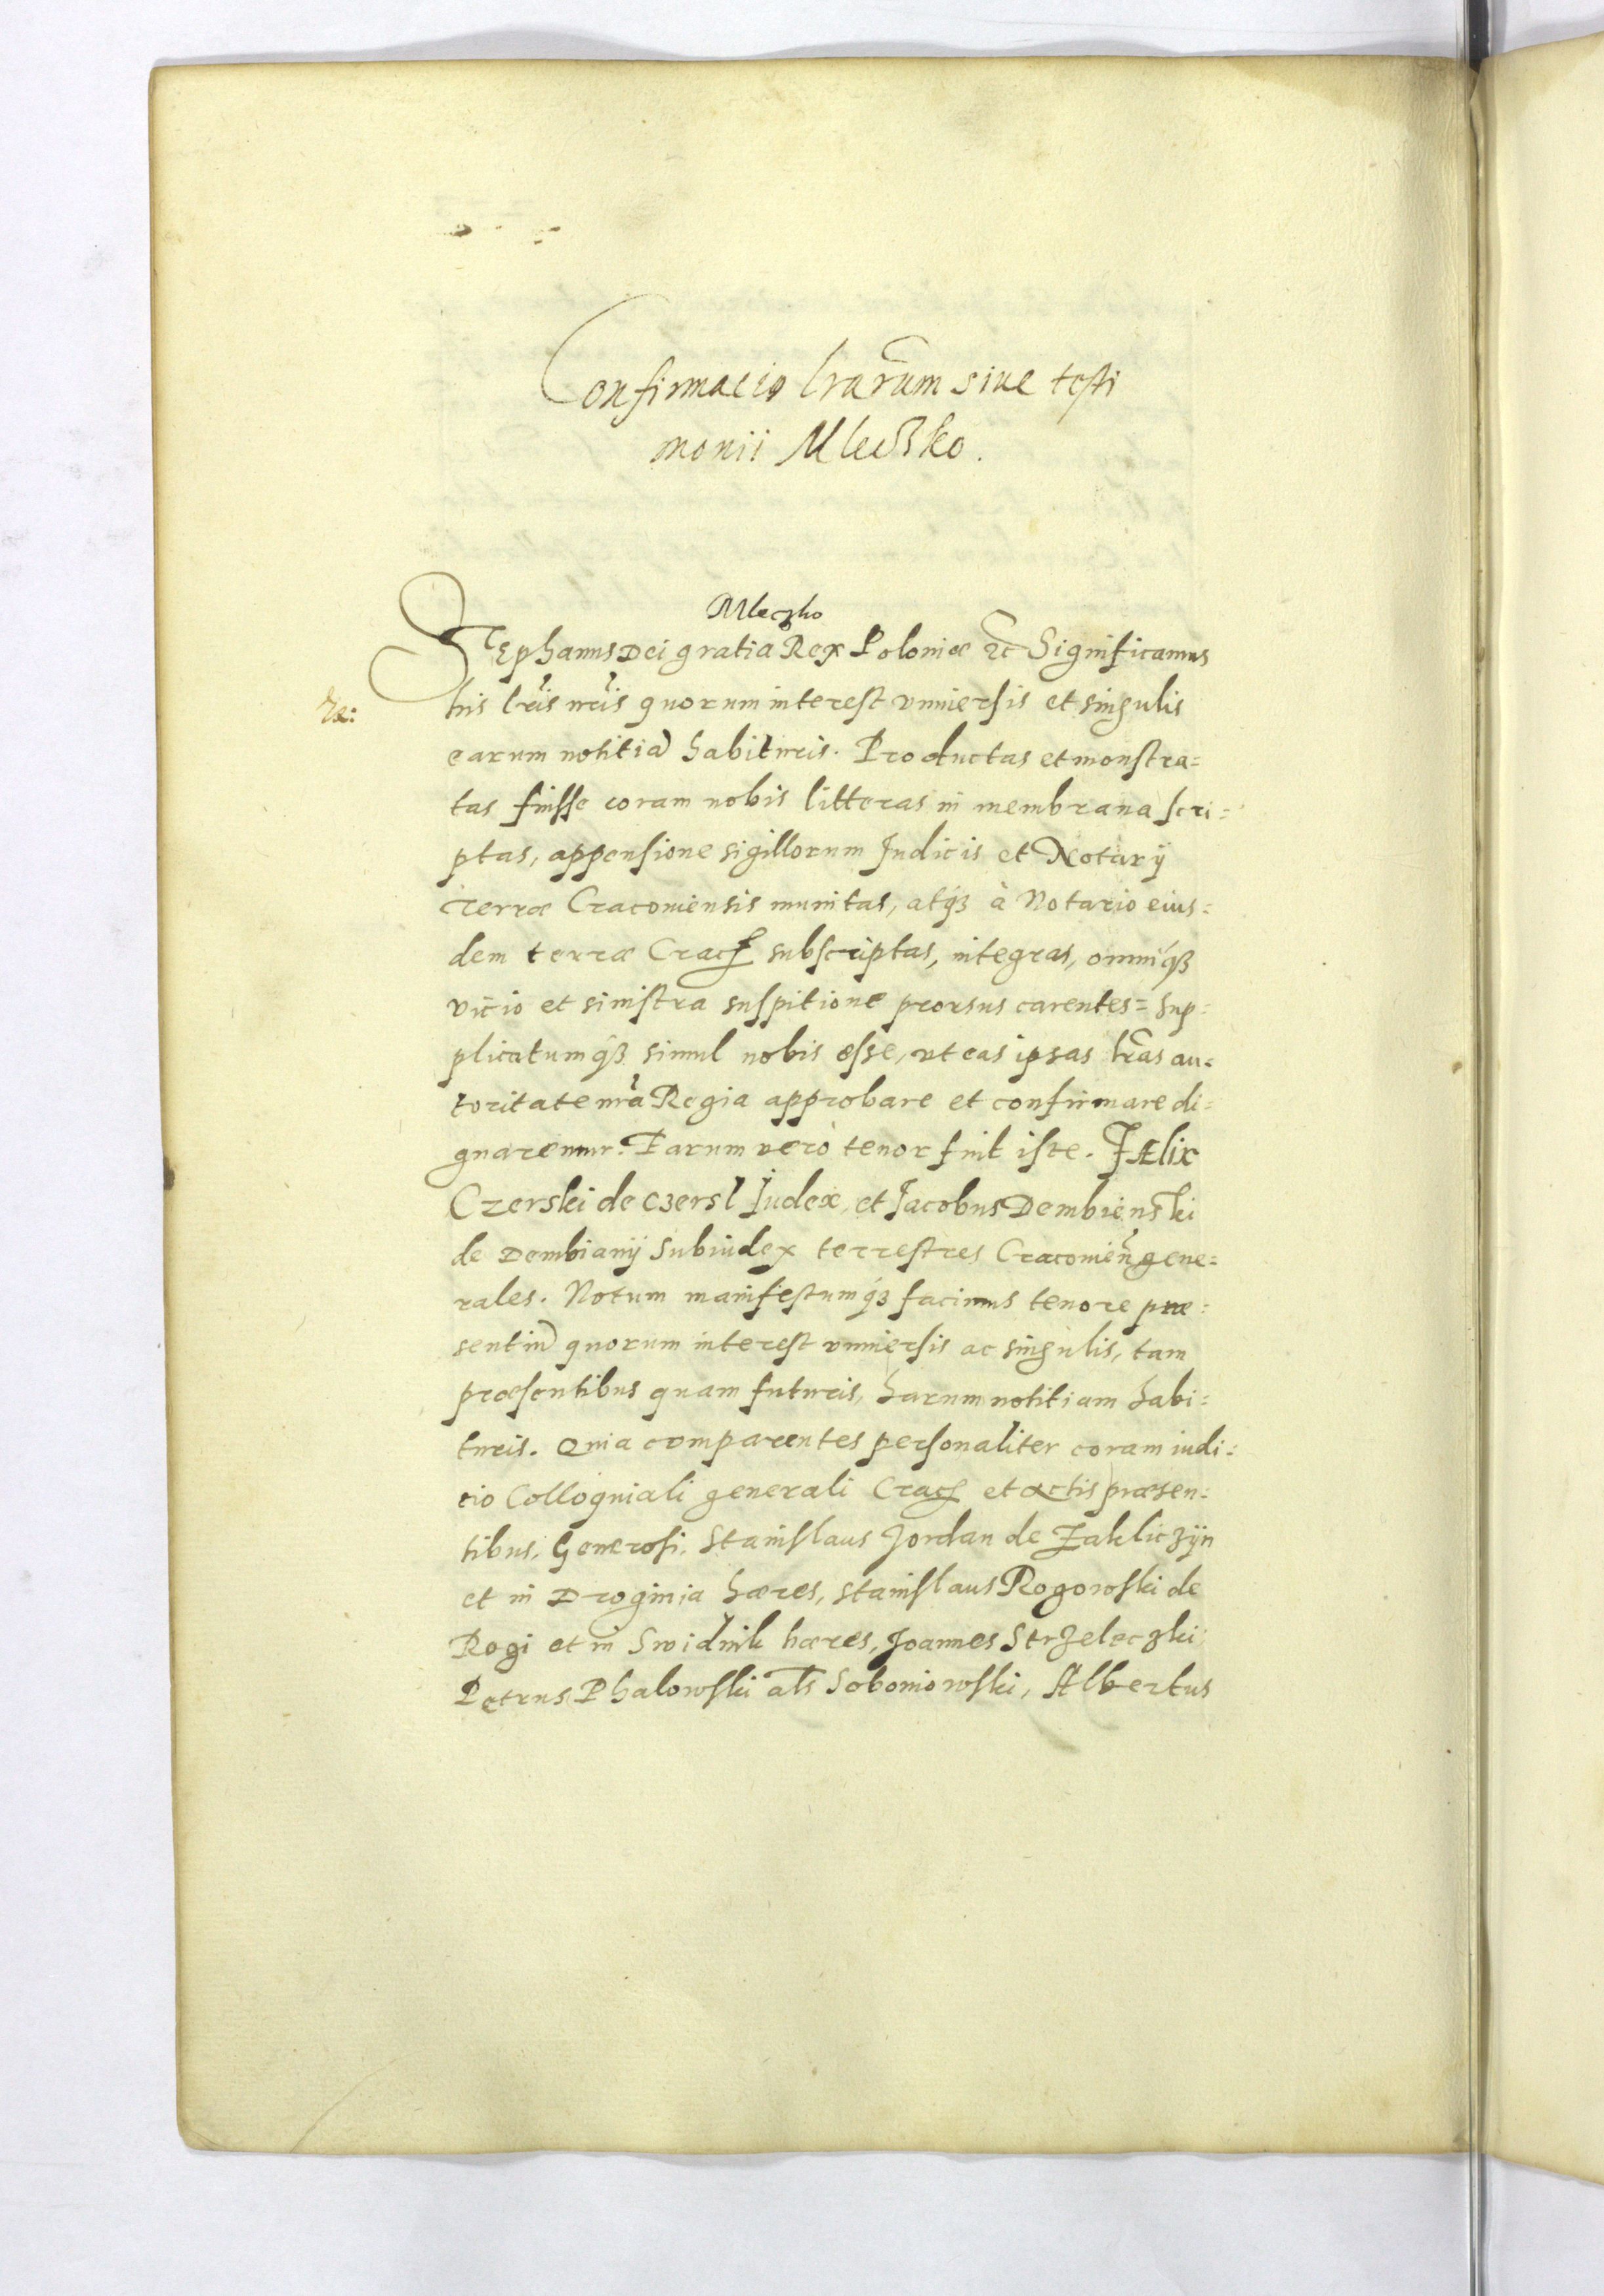 Confirmacio lrarum siue testi
monii Mleczko.
Mleczko
Stephanus Dei gratia Rex Poloniæ etc Significamus
his lris nris quorum interest vniuersis et singulis
earum notitia habituris. Productas et monstra=
tas fuisse coram nobis litteras in membrana scri=
ptas, appensione sigillorum Iudicis et Notarij
Terræ Cracouiensis munitas, atq3 à Notario eius=
dem terræ Crac subscriptas, integras, omniq3
vitio et sinistra suspitione prorsus carentes= Sup=
plicatumq3 simul nobis esse, vt eas ipsas lras au=
toritate nra Regia approbare et confirmare di=
gnaremur. Earum verò tenor fuit iste. Fælix
Czerski de Czersl Iudex, et Jacobus Dembienski
de Dembianij Subiudex terrestres Cracouien gene=
rales. Notum manifestumq3 facimus tenore præ=
sentiu quorum interest vniuersis ac singulis, tam
præsentibus quam futuris, harum notitiam habi=
turis. Quia comparentes personaliter coram iudi=
cio Colloquiali generali Crac et actis præsen=
tibus, Generosi, Stanislaus Jordan de Zakliczijn
et in Droginia hæres, Stanislaus Rogowski de
Rogi et in Swidnik hæres, Joannes Strzeleczki
Petrus Phalowski als Soboniowski, Albertus